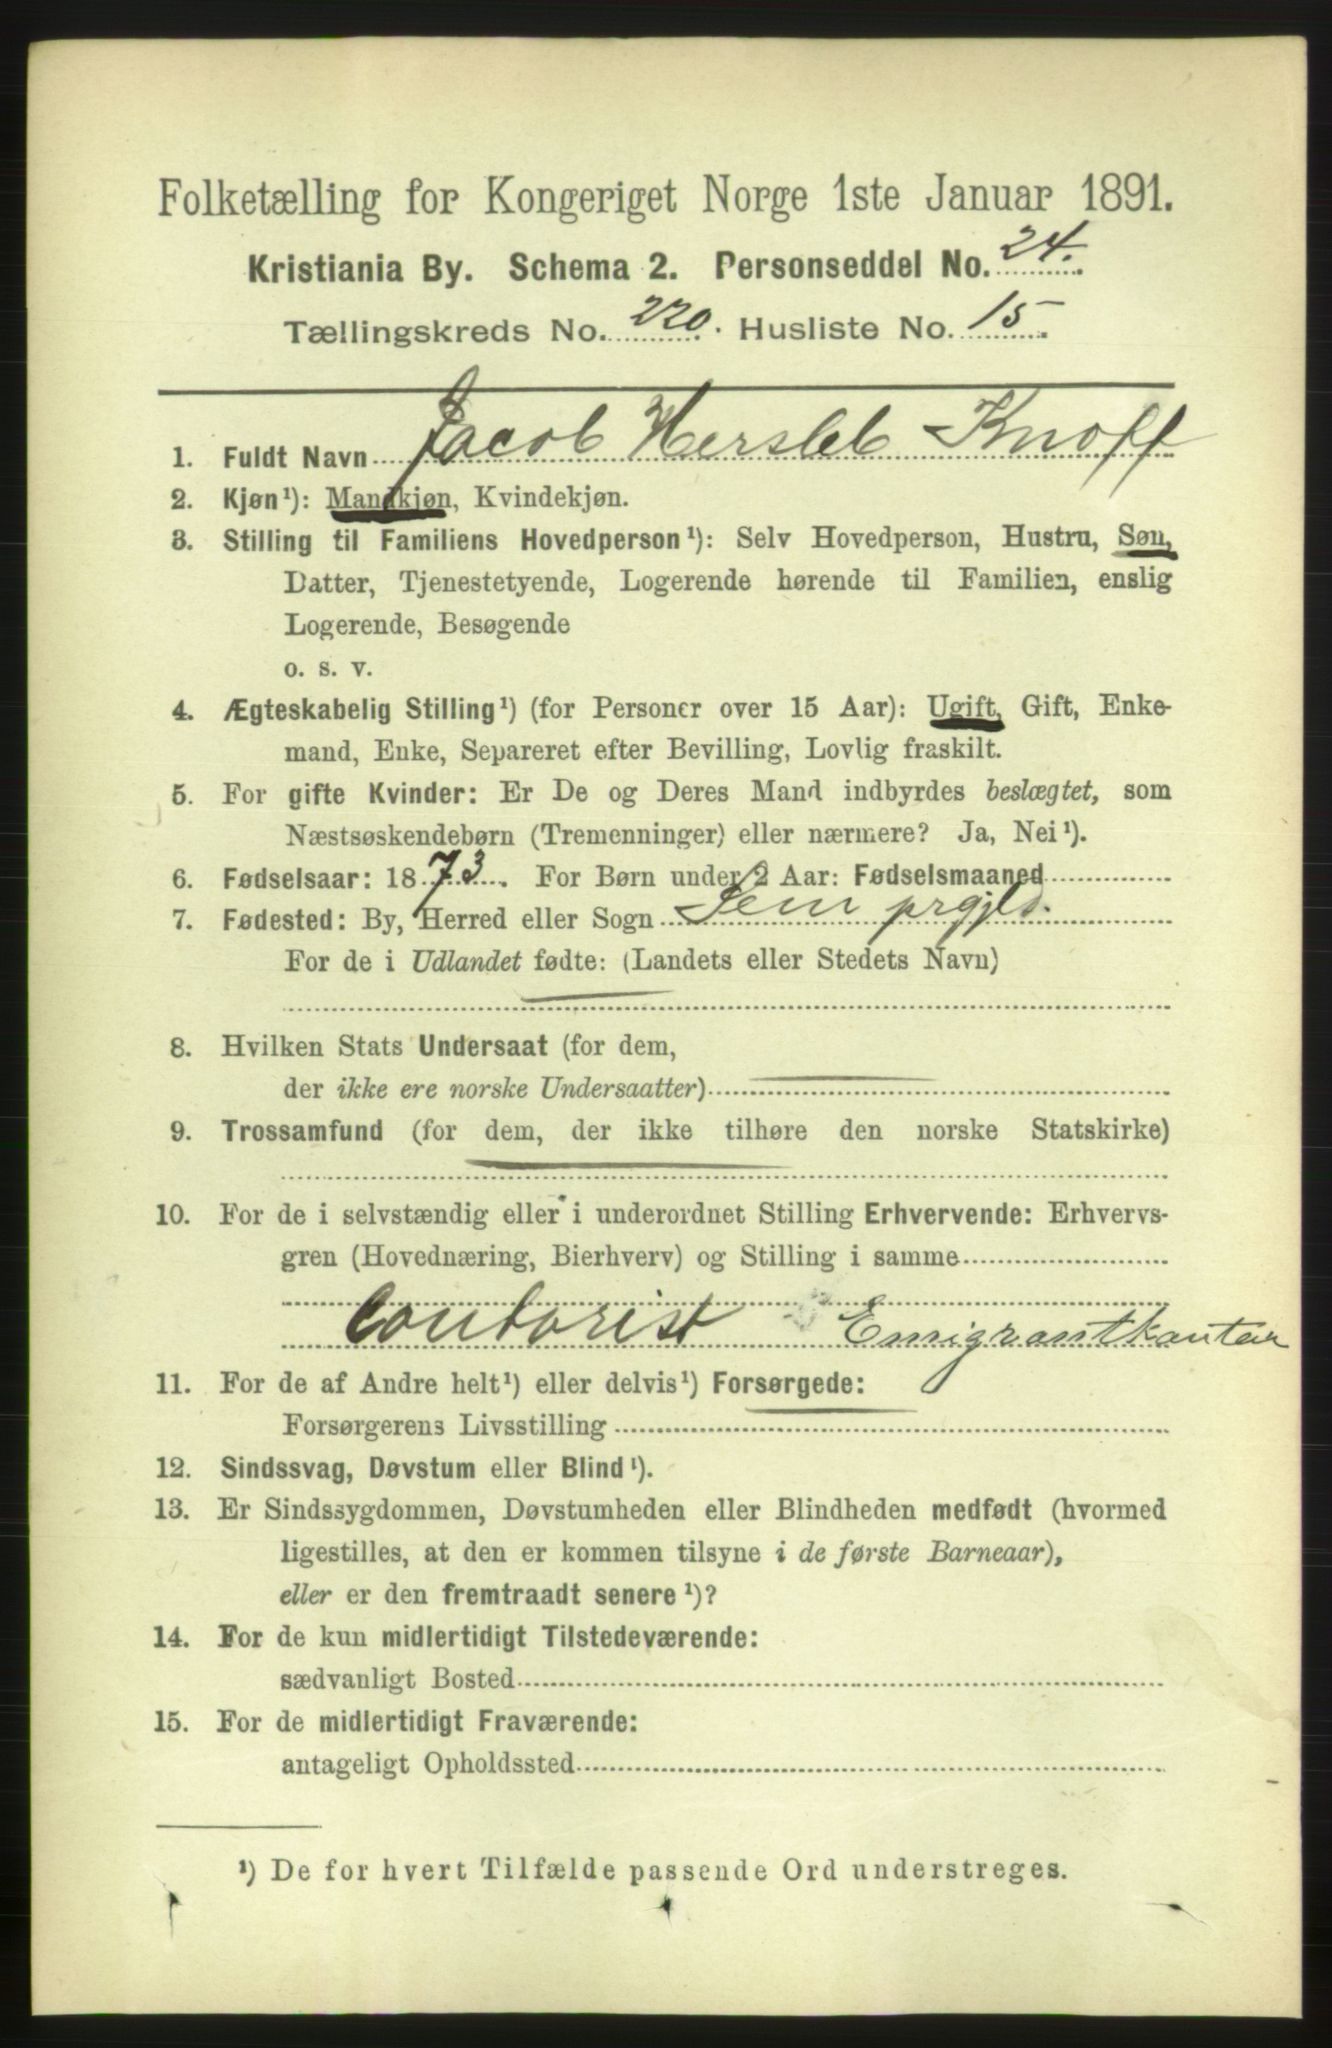 Folketælling for Kongeriget Norge 1ste Januar 1891.
Kristiania By. Schema 2. Personseddel No. 24.
Tællingskreds No. 220. Husliste No. 15.
1. Fuldt Navn Jacob Hersleb Knoff
2. Kjøn¹): Mandkjøn, Kvindekjøn.
3. Stilling til Familiens Hovedperson¹): Selv Hovedperson, Hustru, Søn,
Datter, Tjenestetyende, Logerende hørende til Familien, enslig
Logerende, Besøgende
o. s. v.
4. Ægteskabelig Stilling¹) (for Personer over 15 Aar): Ugift, Gift, Enke-
mand, Enke, Separeret efter Bevilling, Lovlig fraskilt.
5. For gifte Kvinder: Er De og Deres Mand indbyrdes beslægtet, som
Næstsøskendebørn (Tremenninger) eller nærmere? Ja, Nei¹).
6. Fødselsaar: 1873. For Børn under 2 Aar: Fødselsmaaned
7. Fødested: By, Herred eller Sogn Sem prgjld.
For de i Udlandet fødte: (Landets eller Stedets Navn)
8. Hvilken Stats Undersaat (for dem,
der ikke ere norske Undersaatter)
9. Trossamfund (for dem, der ikke tilhøre den norske Statskirke)
10. For de i selvstændig eller i underordnet Stilling Erhvervende: Erhvervs-
gren (Hovednæring, Bierhverv) og Stilling i samme
Contorist Emigrantkontor
11. For de af Andre helt¹) eller delvis¹) Forsørgede:
Forsørgerens Livsstilling
12. Sindssvag, Døvstum eller Blind¹).
13. Er Sindssygdommen, Døvstumheden eller Blindheden medfødt (hvormed
ligestilles, at den er kommen tilsyne i de første Barneaar),
eller er den fremtraadt senere¹)?
14. For de kun midlertidigt Tilstedeværende:
sædvanligt Bosted
15. For de midlertidigt Fraværende:
antageligt Opholdssted
¹) De for hvert Tilfælde passende Ord understreges.